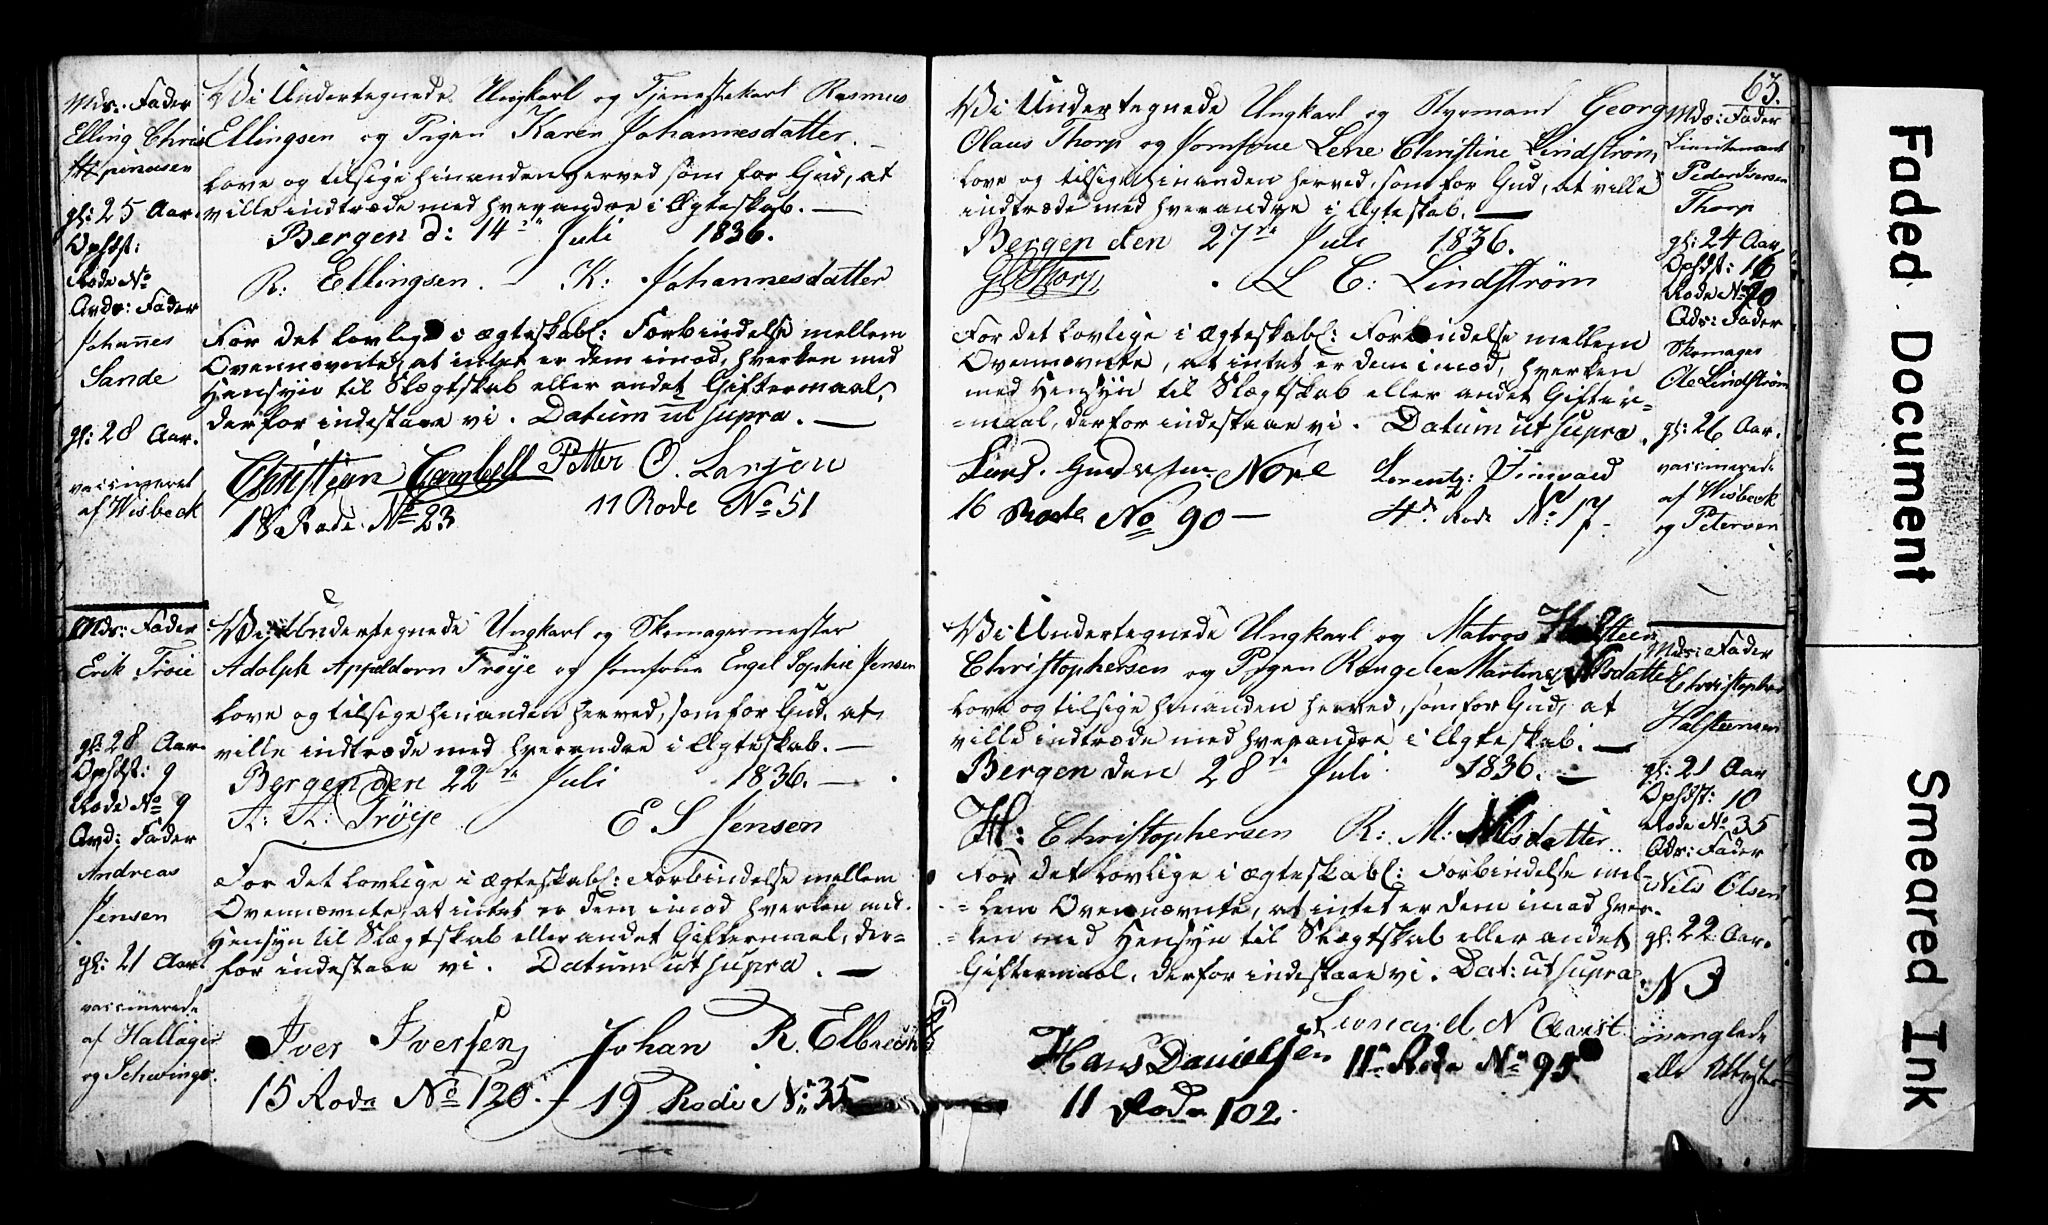 Mds: Fader
Elling Chris
gl: 25 Aar.
Opfdst:
Rode No
Avds: Fader
Johannes
Sande
gl: 28 Aar.
vaccineret
af Wisbeck
Vi Undertegnede Ungkarl og Tjenestekarl Rasmus
Ellingsen og Pigen Karen Johannesdatter.
love og tilsige hinanden herved som for Gud, at
ville indtræde med hverandre i Ægteskab. —
Bergen d: 14de Juli 1836.
R: Ellingsen. - K: Johannesdatter
For det lovlige i ægteskabl: Forbindelse mellem
Ovennævnte, at intet er dem imod, hverken med
Hensyn til Slægtskab eller andet Giftermaal,
derfor indestaae vi. Datum ut supra. —
Christian Cambell Petter O. Larsen
18 Rode No 23 11 Rode No 51
Mds: Fader
Erik Trøie
gl: 28 Aar.
Opfdst: 9
Rode No 9
Avd: Fader
Andreas
Jensen
gl: 21 Aar
vaccinerede
af Hallager
og Schwings.
Vi Undertegnede Ungkarl og Skomagermester
Adolph Appeldorn Trøye og Jomfrue Engel Sophie Jensen
love og tilsige hinanden herved, som for Gud, at
ville indtræde med hverandre i Ægteskab. —
Bergen den 22de Juli 1836. —
A: A: Trøye E S Jensen
For det lovlige i ægteskabl: Forbindelse mellem
Ovennævnte, at intet er dem imod hverken med
Hensyn til Slægtskab eller andet Giftermaal, der=
for indestaae vi. Datum ut supra. —
Iver Iversen Johan R. Elbrecht
15 Rode No 120. - 19 Rode No 35
63.
Vi Undertegnede Ungkarl og Styrmand Georg
Olaus Thorp og Jomfrue Lene Christine Lindstrøm,
love og tilsige hinanden herved, som for Gud, at ville
indtræde med hverandre i Ægteskab. —
Bergen den 27de Juli 1836.
G O Thorp L C: Lindstrøm
For det lovlige i Ægteskabl: Forbindelse mellem
Ovennævnte, at intet er dem imod, hverken
med Hensyn til Slægtskab eller andet Gifter=
=maal, derfor indestaae vi. Datum ut supra.
Nore Lorentz
16 Rode No 90 — 4de Rode No 17.
Mds: Fader
Lieutenant
Peder Iversen
Thorp
gl: 24 Aar
Opfdst: 16
Rode No 90
Ads: Fader
Skomager
Ole Lindstrøm
gl: 26 Aar.
vaccinerede
af Wisbeck
og Petersen
Vi Undertegnede Ungkarl og Matros Halsteen
Christophersen og Pigen Rangele Martine Nilsdatter
love og tilsige hinanden herved, som for Gud, at
ville indtræde med hverandre i Ægteskab. —
Bergen den 28de Juli 1836. —
H: Christophersen R: M: Nilsdatter.
For det lovlige i ægteskabl: Forbindelse mel=
=lem Ovennævnte, at intet er dem imod hver=
=ken med Hensyn til Slægtskab eller andet
Giftermaal, derfor indestaae vi. Dat: ut supra.
Leonard N Qvist
Hans Danielsen 11te Rode No 95
11 Rode 102.
Mds: Fader
Christopher
Halsteensen
gl: 21 Aar
Opfdst: 10
Rode No 35
Ads: Fader
Nils Olsen
gl: 22 Aar.
NB
manglede
alle Attester
Faded Document
Smeared Ink